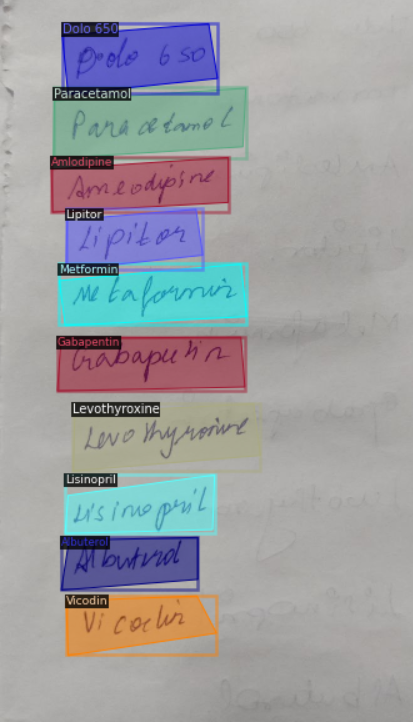 Dolo 650
Dolo 650
Paracetamol
Paracetamol
Amlodipine
Amlodipine
Lipitor
Lipitor
Metformin
Metaformin
Gabapentin
Gabapetin
Levothyroxine
Levothyroxine
Lisinopril
Lisinopril
Albuterol
Albuterol
Vicodin
Vicodin